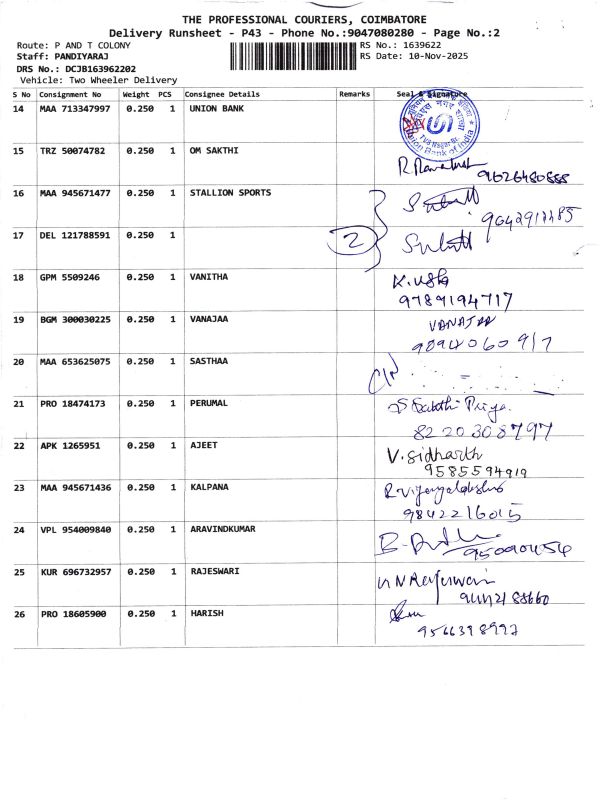 THE PROFESSIONAL COURIERS, COIMBATORE
Delivery Runsheet - P43 - Phone No.:9047080280 - Page No.:2
Route: P AND T COLONY
RS No.: 1639622
Staff: PANDIYARAJ
RS Date: 10-Nov-2025
DRS No.: DCJB163962202
Vehicle: Two Wheeler Delivery
S No Consignment No Weight PCS Consignee Details Remarks Seal & Signature
14 MAA 713347997 0.250 1 UNION BANK
Union Bank of India
15 TRZ 50074782 0.250 1 OM SAKTHI
16 MAA 945671477 0.250 1 STALLION SPORTS
17 DEL 121788591 0.250 1 2
18 GPM 5509246 0.250 1 VANITHA K. Usha
9789194717
19 BGM 300030225 0.250 1 VANAJAA VANAJAA
9894060917
20 MAA 653625075 0.250 1 SASTHAA
21 PRO 18474173 0.250 1 PERUMAL Priya.
8220308797
22 APK 1265951 0.250 1 AJEET V. Sidharth
9585594919
23 MAA 945671436 0.250 1 KALPANA R. Vijayalakshmi
9842216015
24 VPL 954009840 0.250 1 ARAVINDKUMAR
25 KUR 696732957 0.250 1 RAJESWARI
26 PRO 18605900 0.250 1 HARISH